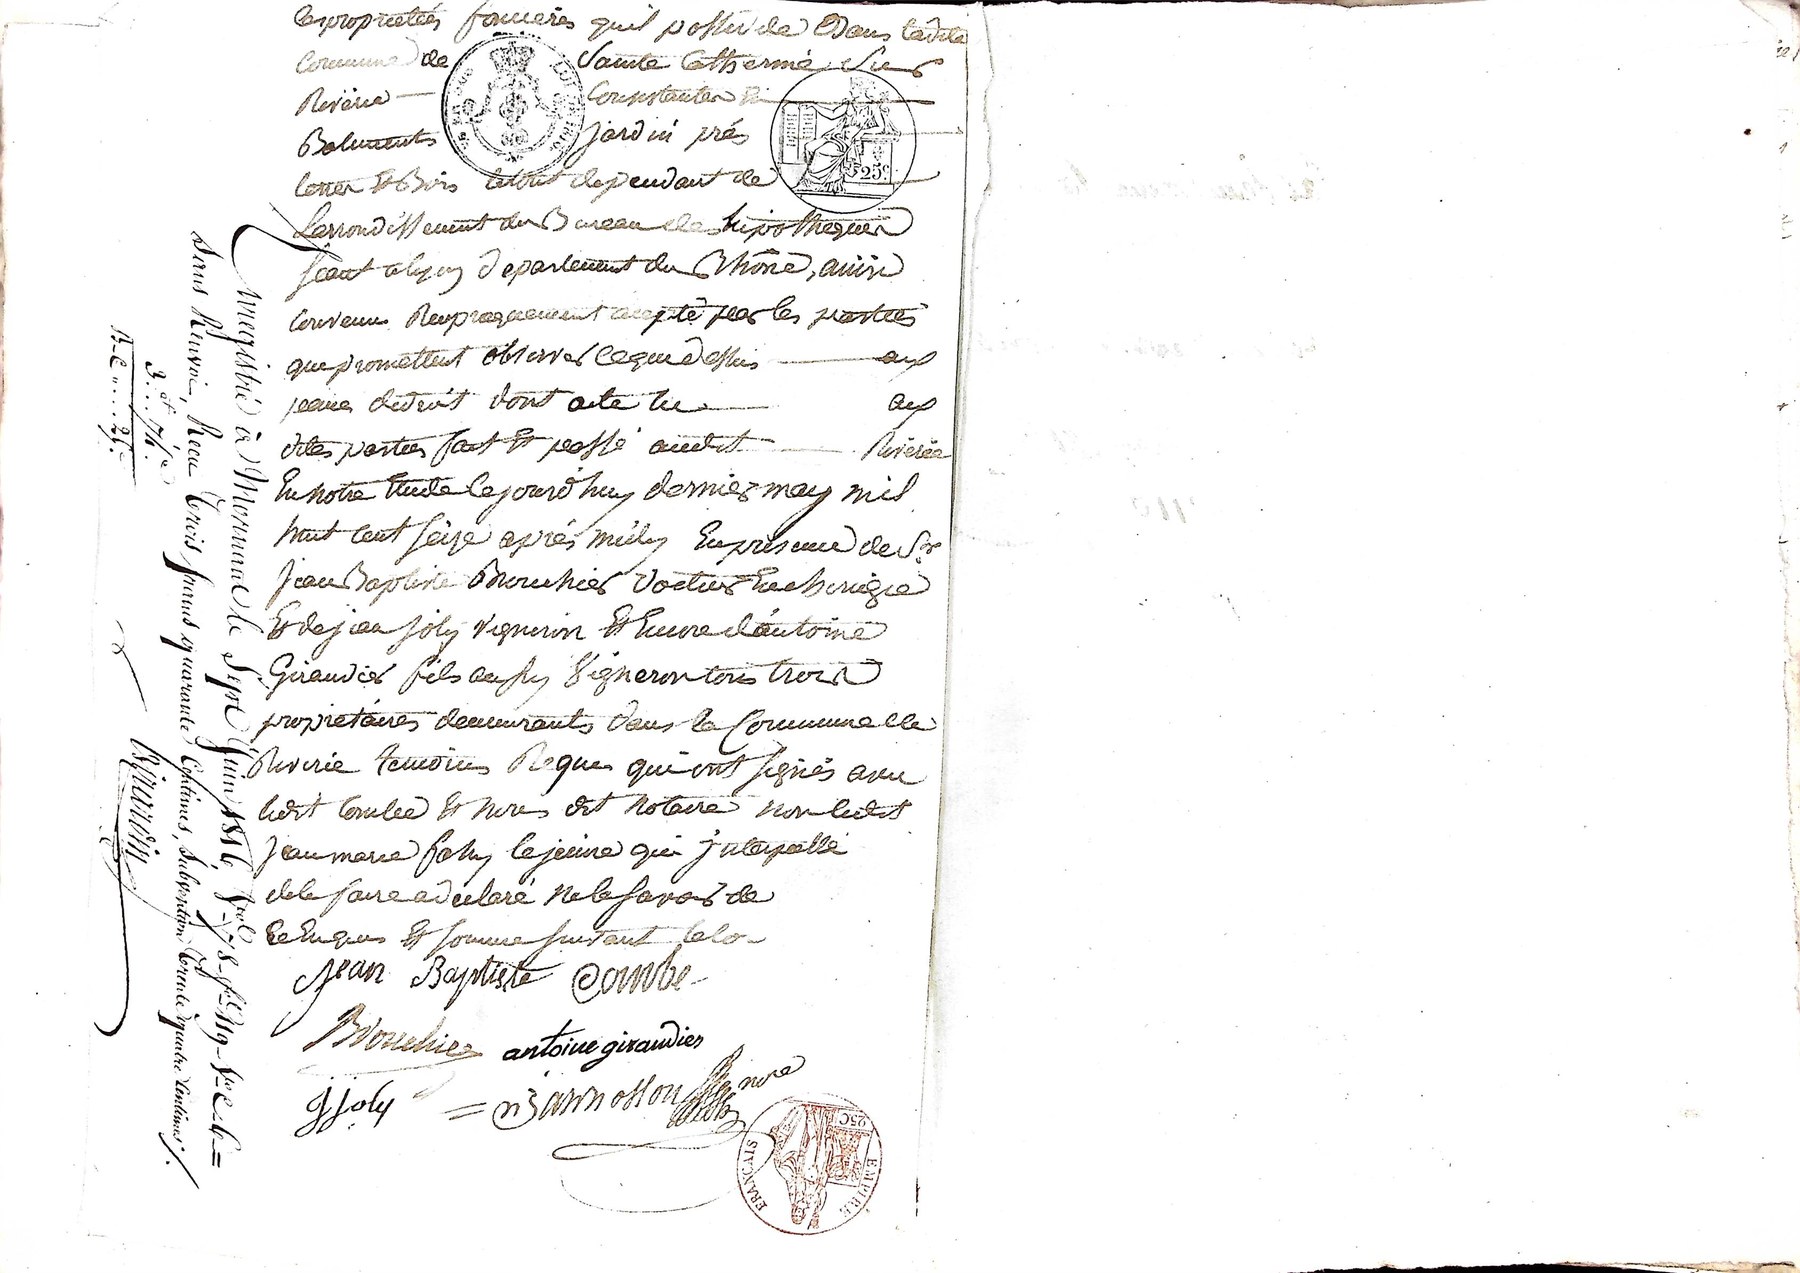 les propriétés foncieres quil possede Dans ladite
Commune de Sainte Catherine Sur
Riverie Consistantes En
Batiments jardin prés
terres Et Bois letout dependant de
Larrondissement du Bureau des hipotheques
séant a lyon Departement du Rhône, ainsi
convenu Reciproquement accepté par les parties
que promettent observer ceque Dessus aux
peines dedroit dont acte lu aux
dites parties fait Et passé audit Riverie
En notre Etude lejourd'huy dernier may mil
huit cent seize après midy En presence de Sr
jean Baptiste Brouchier docteur En chirurgie
Et de jean joly vigneron Et Encore d'antoine
Giraudier fils aussy Vigneron tous trois
propriétaires demeurants dans la Commune de
Riverie temoins Requis qui ont signés avec
ledit Combe Et nous dit notaire non ledit
jean marie faly le jeune qui jnterpellé
dele faire a declaré ne le savoir de
ce Enquis Et sommé suivant la lo-
Jean Baptiste Combe
Brouchier antoine giraudier
J joly = Bannosson nore
25c.
EMPIRE FRANÇAIS
25C
Enregistré à Mornant le Sept Juin 1816, fol. 78
Sans Renvoi, Recu trois francs quarante Centimes, Subvention trente quatre Centimes.
3..74.
Bizardin